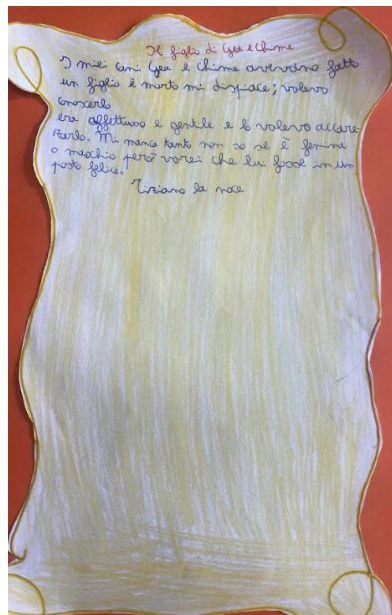 Il figlio di Gea e Chime
I miei cani Gea e Chime avevano fatto
un figlio è morto mi dispiace; volevo
conoscerlo
era affettuoso e gentile e lo volevo accare
zarlo. Mi manca tanto non so se è femina
o maschio però vorei che lui fosse in un
posto felice.
Tiziano la noce